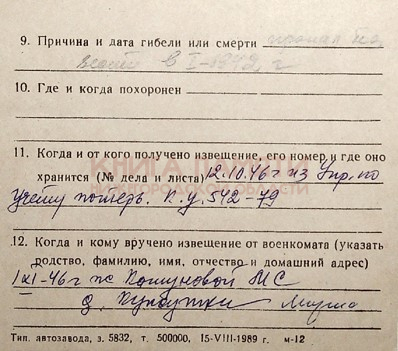 9. Причина и дата гибели или смерти пропал без
вести в I-1942 г
10. Где и когда похоронен
11. Когда и от кого получено извещение, его номер и где оно
хранится (№ дела и листа) 12.10.46 г из Упр. по
учету потерь. К. у. 542-79
КНИГА ПАМЯТИ
ОБЛАСТИ
12. Когда и кому вручено извещение от военкомата (указать
родство, фамилию, имя, отчество и домашний адрес)
1 XI-46 г
МС
д.
Тип. автозавода, з. 5832, т. 500000, 15-VIII-1989 г. м-12